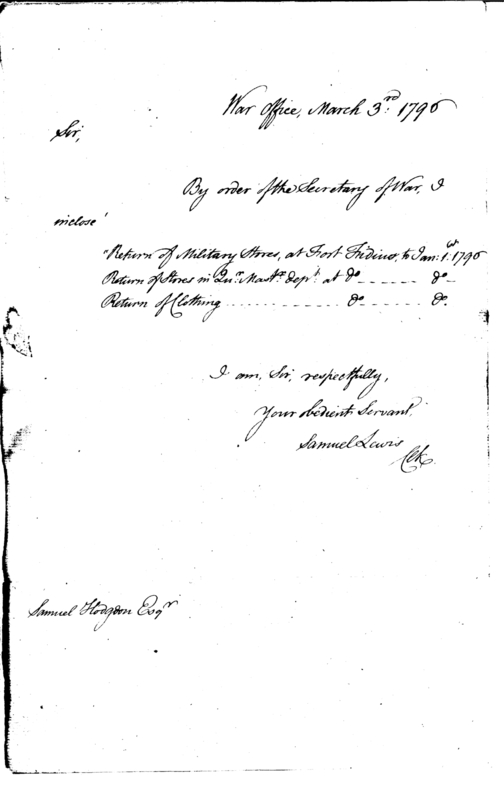 War Office, March 3rd. 1796
Sir,
By order of the Secretary of War, I
inclose
"Return of Military Stores, at Fort Fidius, to Jan: 1st. 1796
Return of Stores in Qur. Mastr. Dept. at do ----- do -
Return of Clothing .............. do ----- do.
I am, Sir, respectfully,
Your obedient Servant,
Samuel Lewis
Clk.
Samuel Hodgdon Esqr